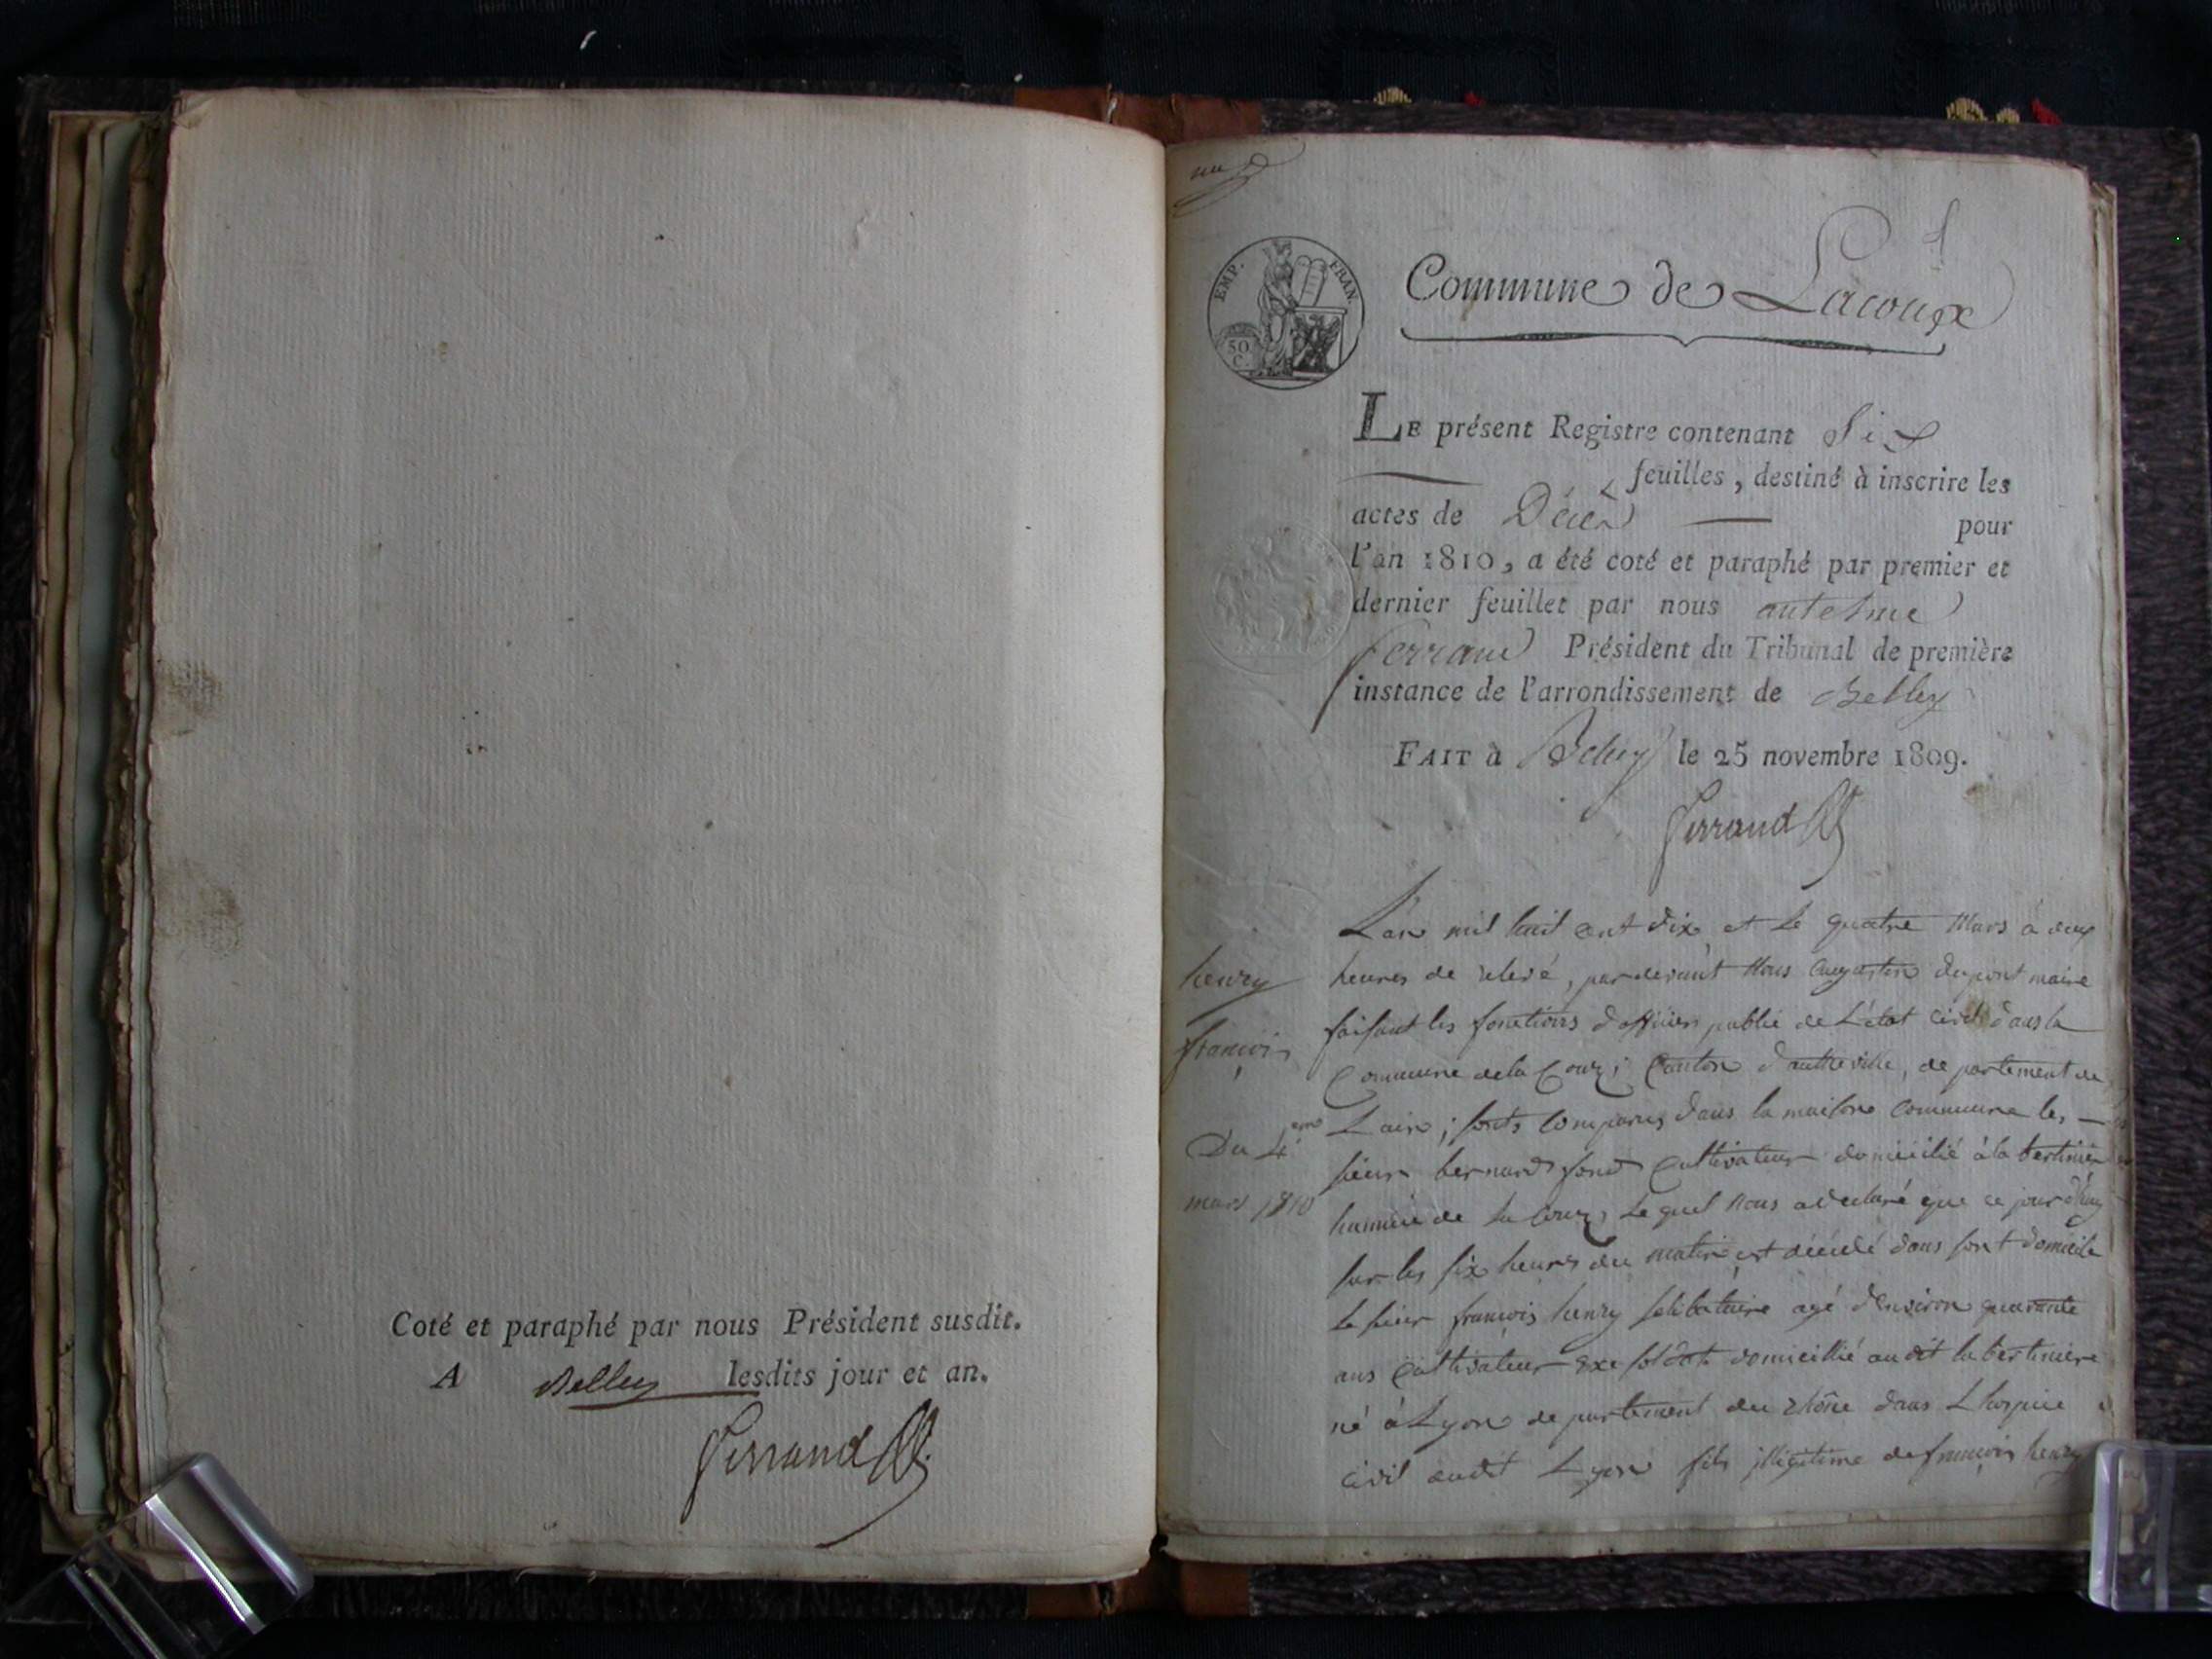 Coté et paraphé par nous Président susdit.
A Belley lesdits jour et an.
Ferrand
EMP. FRAN.
50
C.
1
Commune de Lacoux
LE présent Registre contenant Six
feuilles, destiné à inscrire les
actes de Décès pour
l'an 1810, a été coté et paraphé par premier et
dernier feuillet par nous antelme
ferrand Président du Tribunal de première
instance de l'arrondissement de Belley
FAIT à Belley le 25 novembre 1809.
Ferrand
henry
françois
Du 4eme
mars 1810
L'an mil huit cent dix et le quatre Mars à deux
heures de relevé, pardevant Nous dupont maire
faisant les fonctions d'officier public de L'état civil dans la
Commune de la Coux; Canton d'autteville, departement de
L'ain; sont comparus dans la maison commune les
sieur bernard fond Cultivateur domicilié à la bertinière
hameau de la Coux, Lequel nous a déclaré que ce jourd'huy
sur les six heures du matin est décédé dans sont domicile
Le sieur françois henry selibataire agé d'environ quarante
ans Cultivateur exe soldat domicillié audit la bertinière
né à Lyon departement du rhône dans L'hospice
civil audit Lyon fils illégitime de françois henry